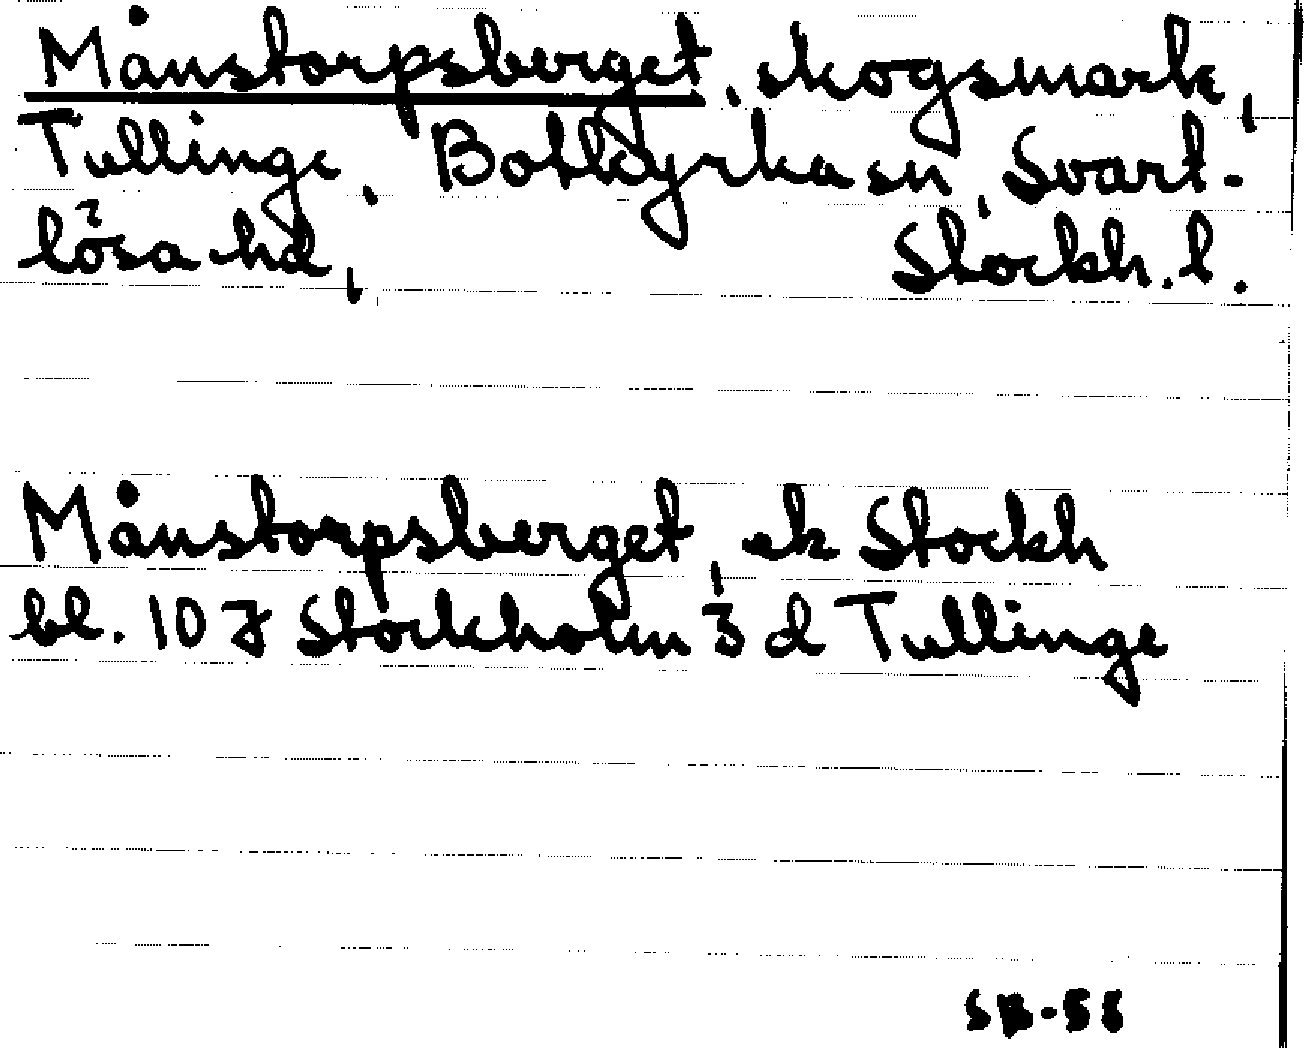 Månstorpsberget, skogsmark,
Tullinge, Botkyrka sn, Svart-
lösa hd, Stockh. l.
Månstorpsberget, ek Stockh
bl. 10 J Stockholm 3 d Tullinge